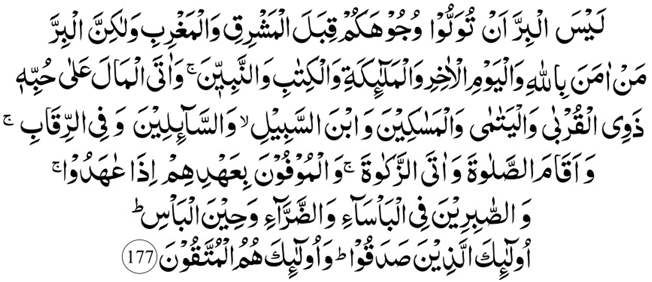 لَيْسَ الْبِرَّ اَنْ تُوَلُّوْا وُجُوْهَكُمْ قِبَلَ الْمَشْرِقِ وَالْمَغْرِبِ وَلٰكِنَّ الْبِرَّ
مَنْ اٰمَنَ بِاللّٰهِ وَالْيَوْمِ الْاٰخِرِ وَالْمَلٰٓئِكَةِ وَالْكِتٰبِ وَالنَّبِيّٖنَ ۚ وَاٰتَى الْمَالَ عَلٰى حُبِّهٖ
ذَوِى الْقُرْبٰى وَالْيَتٰمٰى وَالْمَسٰكِيْنَ وَابْنَ السَّبِيْلِ ۙ وَالسَّآئِلِيْنَ وَفِى الرِّقَابِ ۚ
وَاَقَامَ الصَّلٰوةَ وَاٰتَى الزَّكٰوةَ ۚ وَالْمُوْفُوْنَ بِعَهْدِهِمْ اِذَا عٰهَدُوْا ۚ
وَالصّٰبِرِيْنَ فِى الْبَاْسَآءِ وَالضَّرَّآءِ وَحِيْنَ الْبَاْسِ ؕ
اُولٰٓئِكَ الَّذِيْنَ صَدَقُوْا ؕ وَاُولٰٓئِكَ هُمُ الْمُتَّقُوْنَ 177